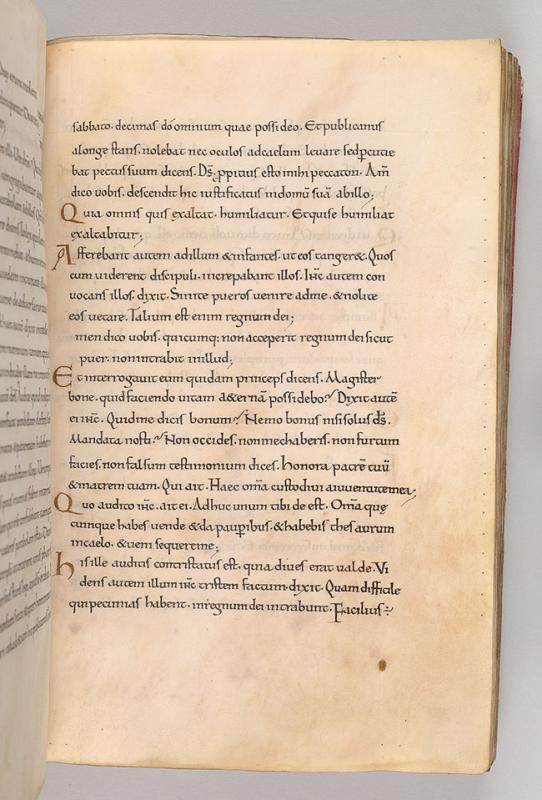 sabbato. decimas do omnium quae possideo. Et publicanus
alonge stans. nolebat nec oculos adcaelum levare sed pcutie
bat pectus suum dicens. Ds. ppitius esto mihi peccatori. Am
dico vobis. descendit hic iustificatus indomu sua abillo;
Quia omnis quis exaltat. humiliatur. Et quise humiliat
exaltabitur;
Afferebant autem adillum & infantes. ut eos tanger&. Quos
cum viderent discipuli. increpabant illos. Ihc autem con
vocans illos. dixit. Sinite pueros venire adme. & nolite
eos vetare. Talium est enim regnum dei;
men dico vobis. quicumq: non acceperit regnum dei sicut
puer. nonintrabit inillud;
Et interrogavit eum quidam princeps dicens. Magister
bone. quid faciendo vitam a&erna possidebo? Dixit aute
ei ihc. Quidme dicis bonum? Nemo bonus nisi solus ds.
Mandata nosti? Non occides. nonmechaberis. non furtum
facies. non falsum testimonium dices. Honora patre tuu
& matrem tuam. Qui ait. Haec oma custodivi aiuventutemea;
Quo audito ihc. ait ei. Adhuc unum tibi deest. Oma que
cumque habes vende & da pauperibus. & habebis thesaurum
incaelo. & veni sequereme;
hisille auditis contristatus est. quia dives erat valde. Vi
dens autem illum ihc tristem factum. dixit. Quam difficile
qui pecunias habent. inregnum dei intrabunt. Facilius